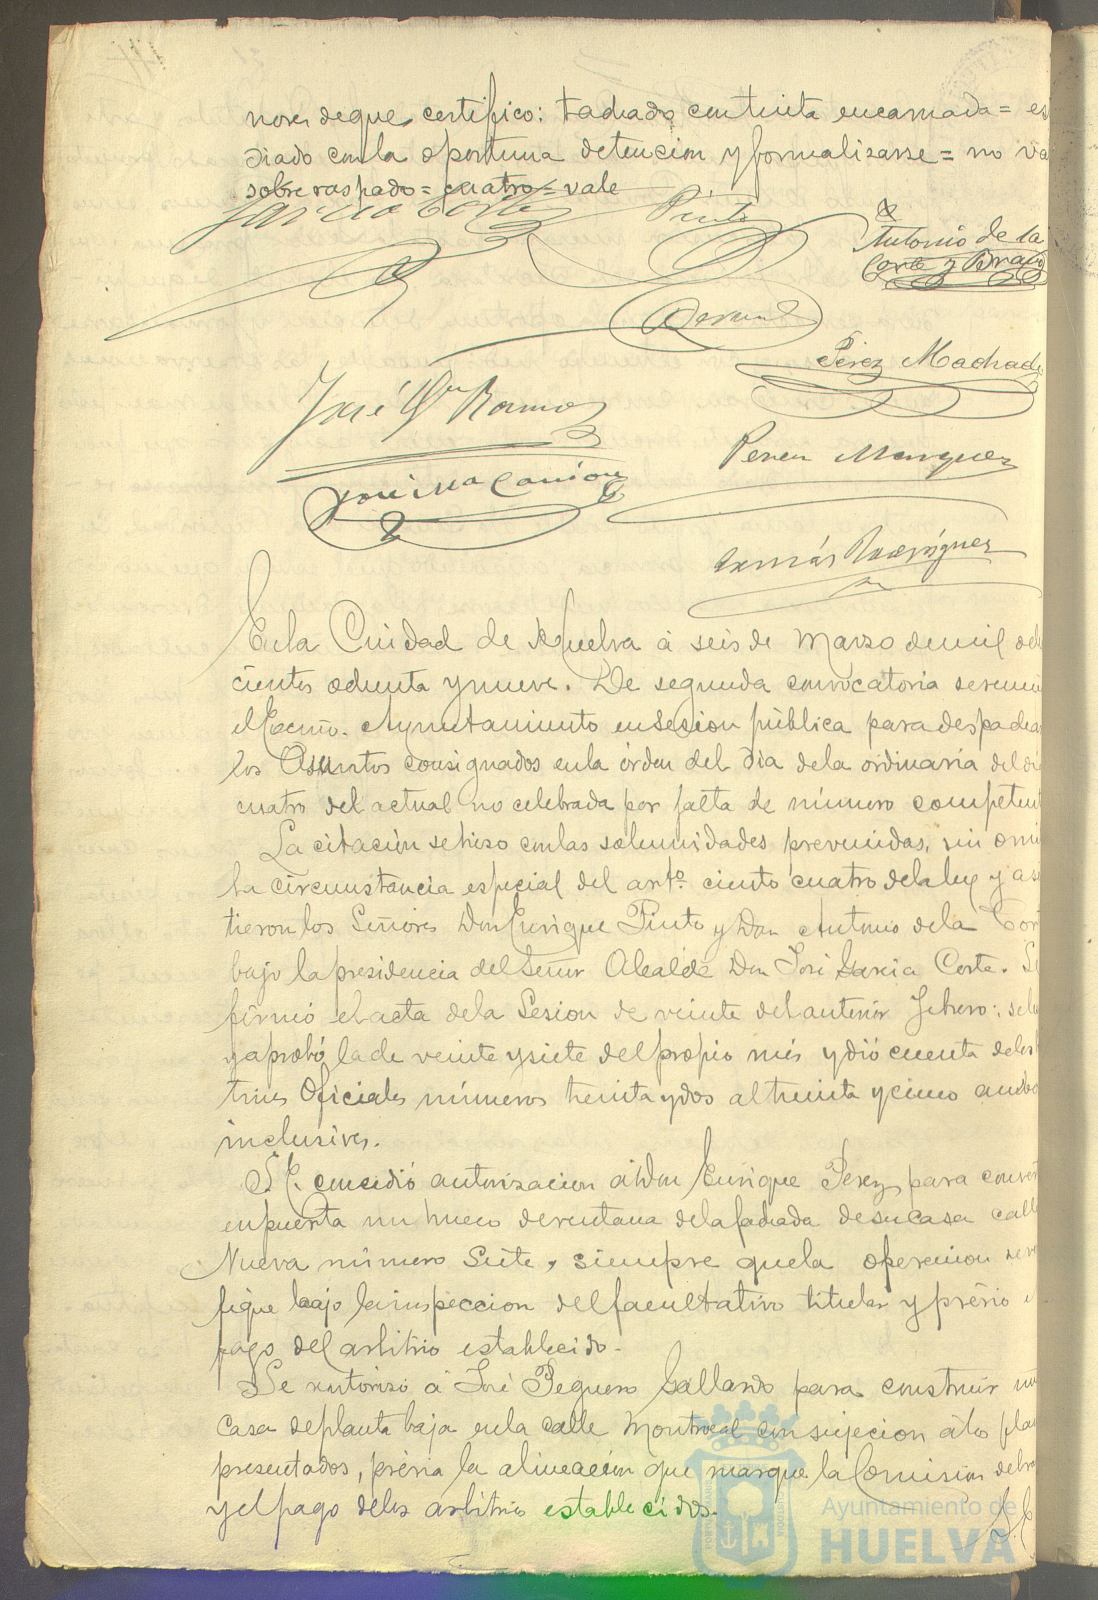 nores de que certifico: tachado con tinta encarnada = es
diado con la oportuna detencion y formalizarse = no va
sobre raspado = cuatro = vale
Garcia Corte
Pinto
Antonio de la
Corte y Bravo
Perez Machado
José Mª Ramos
Perez Marquez
José Mª Carrion
Tomás Rodriguez
En la Ciudad de Huelva á seis de Marzo de mil ocho
cientos ochenta y nueve. De segunda convocatoria se reunió
el Excmo. Ayuntamiento en sesion pública para despachar
los Asuntos consignados en la órden del dia de la ordinaria del dia
cuatro del actual no celebrada por falta de número competente
La citación se hizo con las solemnidades prevenidas, sin omi
la circunstancia especial del artº. ciento cuatro de la ley y asis
tieron los Señores Don Enrique Pinto y Don Antonio de la Cor
bajo la presidencia del Señor Alcalde Don José Garcia Corte. Se
firmó el acta de la Sesion de veinte del anterior Febrero: se le
y aprobó la de veinte y siete del propio mes y dió cuenta de los
tines Oficiales números treinta y dos al treinta y cinco ambos
inclusives.
S. E. concedió autorizacion á Don Enrique Perez para conver
en puerta un hueco de ventana de la fachada de su casa calle
Nueva número Siete, siempre que la operacion se ve
fique bajo la inspeccion del facultativo titular y prévio
pago del arbitrio establecido.
Se autorizó á José Peguero Gallardo para construir una
casa de planta baja en la calle Montrocal con sujecion á los pla
presentados, prévia la alineación que marque la Comision de
y el pago de los arbitrios establecidos.
S. E.
Ayuntamiento de
HUELVA